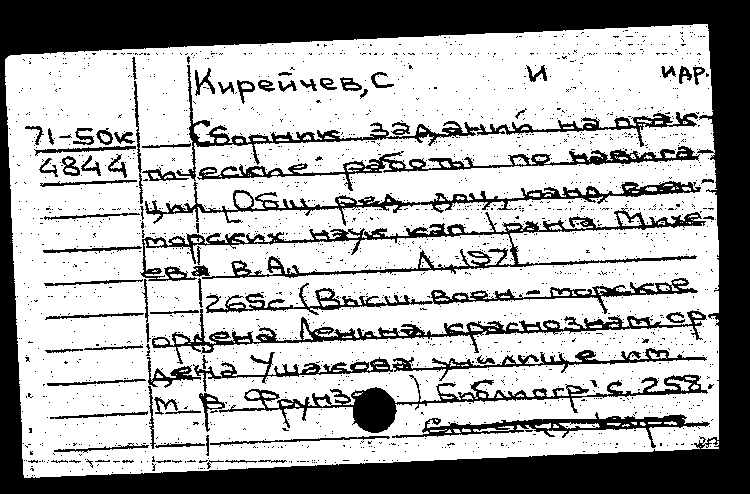 Кирейчев, С и идр.
71-50к Сборник заданий на прак-
4844 тические работы по навига-
ции. [Общ. ред. доц., канд. воен.-
морских наук, кап 1 ранга Михе-
ева В.А., Л., 1971
265с (Высш. воен.-морское
ордена Ленина, краснознам. ор-
дена Ушакова училище им.
М В. Фрунзе). Библиогр: с. 258.